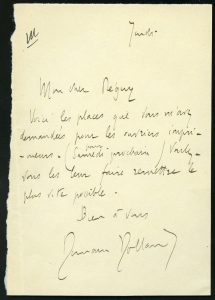 Jeudi.
Mon cher Péguy
Voici les places que vous m'avez
demandées pour les ouvriers impri-
meurs. (Samedi prochain) Voulez-
vous les leur faire remettre le
plus vite possible.
Bien à vous
Romain Rolland